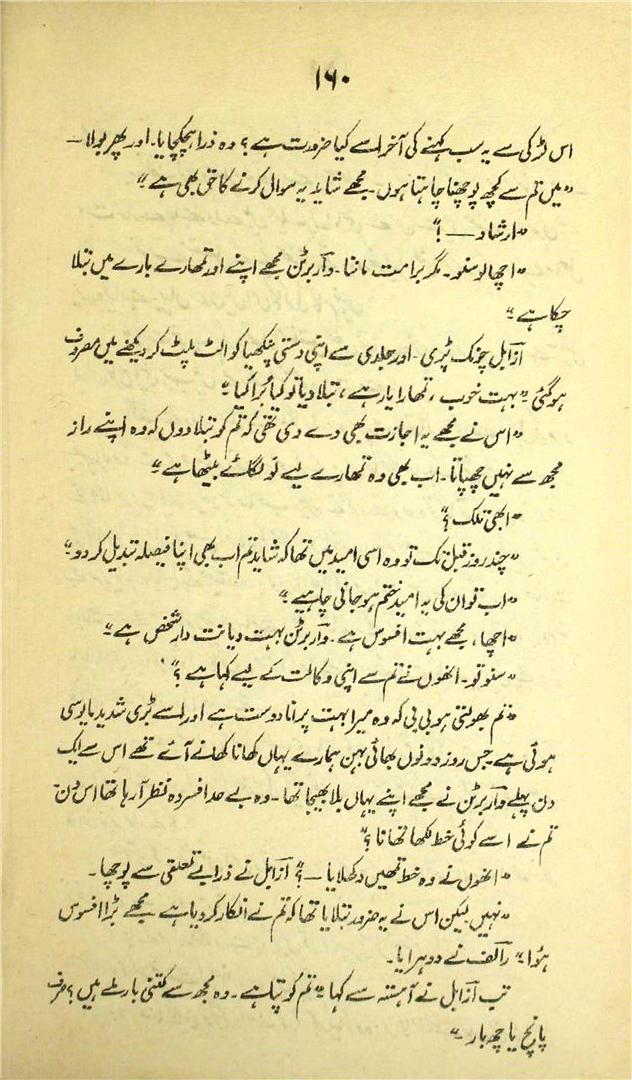 ۱۶۰
اس لڑکی سے یہ سب کہنے کی آخر اسے کیا ضرورت ہے؟ وہ ذرا ہچکچایا۔ اور پھر بولا۔—
"میں تم سے کچھ پوچھنا چاہتا ہوں۔ مجھے شاید یہ سوال کرنے کا حق بھی ہے۔"
"ارشاد —!"
"اچھا لو سنو۔ مگر برا مت ماننا۔ واربرٹن مجھے اپنے اور تمھارے بارے میں بتلا
چکا ہے۔"
ازابل چونک پڑی۔ اور جلدی سے اپنی دستی پنکھیا کو الٹ پلٹ کر دیکھنے میں مصروف
ہو گئی۔ "بہت خوب، تمھارا یار ہے، بتلا دیا تو کیا بُرا کیا۔"
"اس نے مجھے یہ اجازت بھی دے دی تھی کہ تم کو بتلا دوں کہ وہ اپنے راز
مجھ سے نہیں چھپاتا۔ اب بھی وہ تمھارے لیے لَو لگائے بیٹھا ہے۔"
"ابھی تلک؟"
"چند روز قبل تک تو وہ اسی امید میں تھا کہ شاید تم اب بھی اپنا فیصلہ تبدیل کر دو۔"
"اب تو ان کی یہ امید ختم ہو جانی چاہیے۔"
"اچھا، مجھے بہت افسوس ہے۔ واربرٹن بہت دیانت دار شخص ہے۔"
"سنو تو۔ انھوں نے تم سے اپنی وکالت کے لیے کہا ہے؟"
"تم بھولتی ہو بی بی کہ وہ میرا بہت پرانا دوست ہے اور اسے بڑی شدید مایوسی
ہوئی ہے جس روز دونوں بھائی بہن ہمارے یہاں کھانا کھانے آئے تھے اس سے ایک
دن پہلے واربرٹن نے مجھے اپنے یہاں بلا بھیجا تھا۔ وہ بے حد افسردہ نظر آرہا تھا اس دن
تم نے اسے کوئی خط لکھا تھا نا؟"
"انھوں نے وہ خط تمھیں دکھلایا —؟" ازابل نے ذرا بے تعلقی سے پوچھا۔
"نہیں لیکن اس نے یہ ضرور بتلایا تھا کہ تم نے انکار کر دیا ہے۔ مجھے بڑا افسوس
ہوا۔" رالف نے دوہرایا۔
تب ازابل نے آہستہ سے کہا۔ "تم کو پتا ہے۔ وہ مجھ سے کتنی بار ملے ہیں؟ صرف
پانچ یا چھ بار۔"